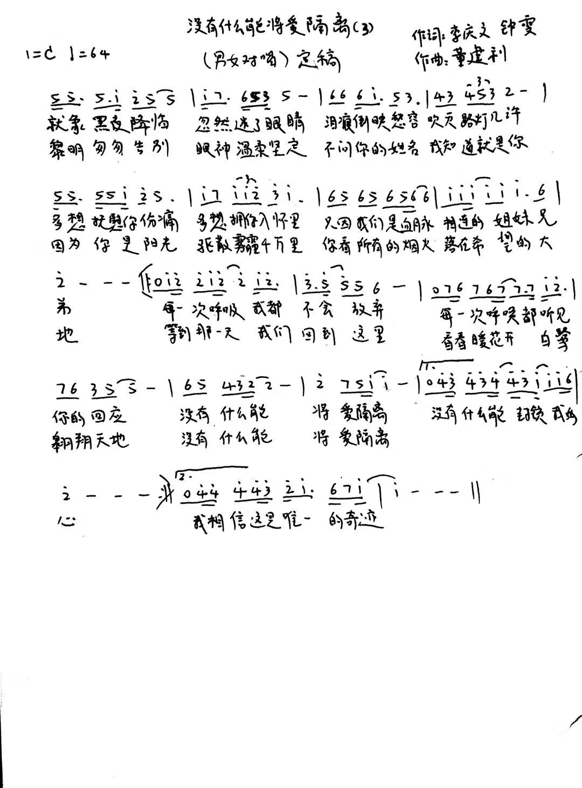 没有什么能将爱隔离(3)
(男女对唱) 定稿
作词:李庆文 钟雯
作曲:董建利
1=C ♩=64
5 5. 5. i 2 5 5 | i 7. 6 5 3 5 - | 6 6 6 i. 5 3. | 4 3 4 5 3 2 - |
就象 黑夜降临 忽然迷了眼睛 泪痕倒映愁容 吹灭路灯几许
黎明匆匆告别 眼神温柔坚定 不问你的姓名 我知道就是你
5 5. 5 5 i 2 5. | i 7 i i 2 3 i. | 6 5 6 5 6 5 6 6 | i i i i i i. 6 |
多想抚慰你伤痛 多想拥你入怀里 只因我们是血脉相连的姐妹兄
因为 你是阳光 驱散雾霾千万里 你看所有的烟火 落在希望的大
2 - - - ‖: 0 i 2 2 i 2 2 i 2. | 3. 5 5 5 6 - | 0 7 6 7 6 7 7. 7 i 2. |
弟 每一次呼吸 我都 不会 放弃 每一次呼唤都听见
地 等到那一天 我们 回到 这里 看春暖花开 白鸽
7 6 3 5 5 - | 6 5 4 3 2 2 - | 2 7 5 i i - | 0 4 3 4 3 4 4 3 i i i 6 |
你的回应 没有 什么能 将 爱隔离 没有什么能 封锁 我的
翱翔天地 没有 什么能 将 爱隔离
2 - - - :‖ 2. 0 4 4 4 4 3 2 i. 6 7 i | i - - - ‖
心 我相信这是唯一 的奇迹